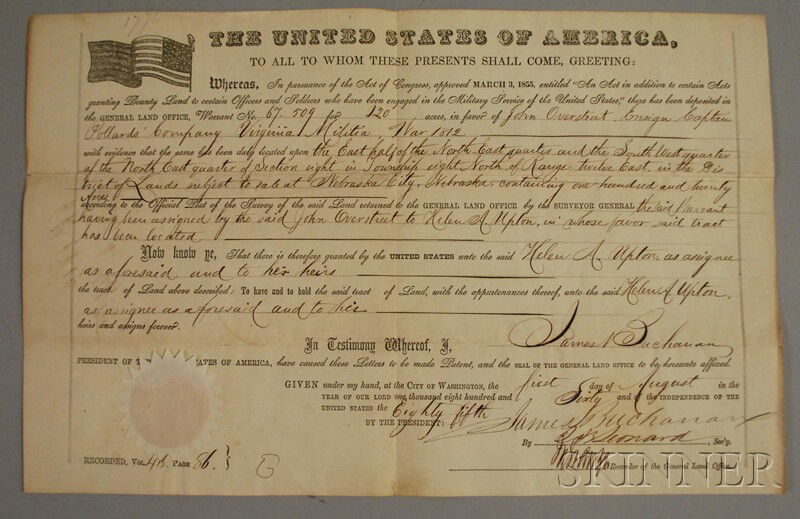 THE UNITED STATES OF AMERICA,
TO ALL TO WHOM THESE PRESENTS SHALL COME, GREETING:
Whereas, In pursuance of the Act of Congress, approved MARCH 3, 1855, entitled "An Act in addition to certain Acts
granting Bounty Land to certain Officers and Soldiers who have been engaged in the Military Service of the United States," there has been deposited in
the GENERAL LAND OFFICE, Warrant No. 57.509 for 120 acres, in favor of John Overstreet, Ensign Captain
Pollards' Company Virginia Militia, War 1812
with evidence that the same has been duly located upon the East half of the North East quarter and the South West quarter
of the North East quarter of Section eight, in Township eight, North of Range twelve East, in the Dis
trict of Lands subject to sale at Nebraska City, Nebraska, containing one hundred and twenty
Acres
according to the Official Plat of the Survey of the said Land returned to the GENERAL LAND OFFICE by the SURVEYOR GENERAL the said Warrant
having been assigned by the said John Overstreet to Helen A. Upton, in whose favor said tract
has been located
Now know ye, That there is therefore granted by the UNITED STATES unto the said Helen A. Upton, as assignee
as aforesaid and to her heirs
the tract of Land above described: To have and to hold the said tract of Land, with the appurtenances thereof, unto the said Helen A. Upton,
as assignee as aforesaid and to her
heirs and assigns forever.
In Testimony Whereof, I, James Buchanan
PRESIDENT OF T ATES OF AMERICA, have caused these Letters to be made Patent, and the SEAL OF THE GENERAL LAND OFFICE to be hereunto affixed.
GIVEN under my hand, at the CITY OF WASHINGTON, the first day of August in the
YEAR OF OUR LORD one thousand eight hundred and Sixty and of the INDEPENDENCE OF THE
UNITED STATES THE Eighty fifth
BY THE PRESIDENT: James Buchanan
By Leonard, Sec'y.
Recorder of the General Land Office
RECORDED, VOL. 418. PAGE 86.
SKINNER